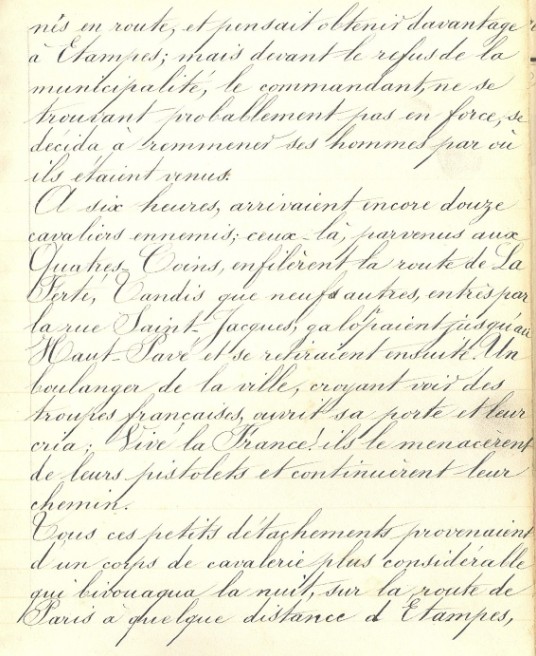 nés en route, et pensait obtenir davantage
à Etampes; mais devant le refus de la
municipalité, le commandant, ne se
trouvant probablement pas en force, se
décida à remmener ses hommes par où
ils étaient venus.
A six heures, arrivaient encore douze
cavaliers ennemis; ceux-là, parvenus aux
Quatres-Coins, enfilèrent la route de La
Ferté, Tandis que neufs autres, entrés par
la rue Saint-Jacques, galopaient jusqu'au
Haut-Pavé et se retiraient ensuite. Un
boulanger de la ville, croyant voir des
troupes françaises, ouvrit sa porte et leur
cria: Vive la France! ils le menacèrent
de leurs pistolets et continuèrent leur
chemin.
Tous ces petits détachements provenaient
d'un corps de cavalerie plus considérable
qui bivouaqua la nuit, sur la route de
Paris à quelque distance d Etampes,